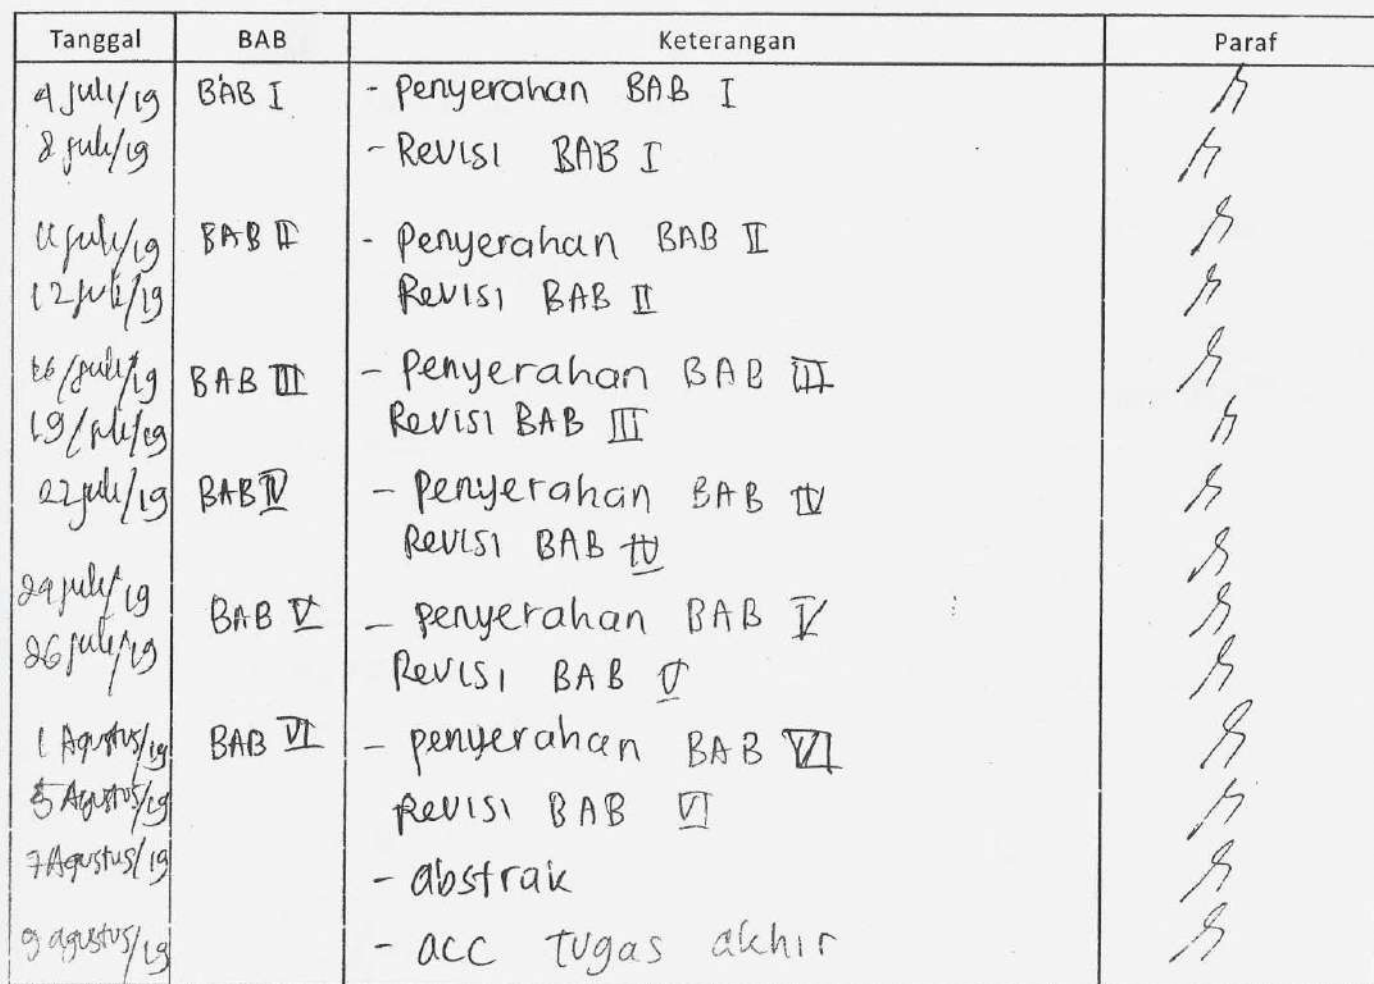 Tanggal BAB Keterangan Paraf
4 Juli/19 BAB I - Penyerahan BAB I
8 Juli/19 - Revisi BAB I
11 Juli/19 BAB II - Penyerahan BAB II
12 Juli/19 Revisi BAB II
16/Juli/19 BAB III - Penyerahan BAB III
19/Juli/19 Revisi BAB III
22 Juli/19 BAB IV - Penyerahan BAB IV
Revisi BAB IV
24 Juli/19 BAB V - penyerahan BAB V
26 Juli/19 Revisi BAB V
1 Agustus/19 BAB VI - penyerahan BAB VI
5 Agustus/19 Revisi BAB VI
7 Agustus/19 - abstrak
9 agustus/19 - acc tugas akhir